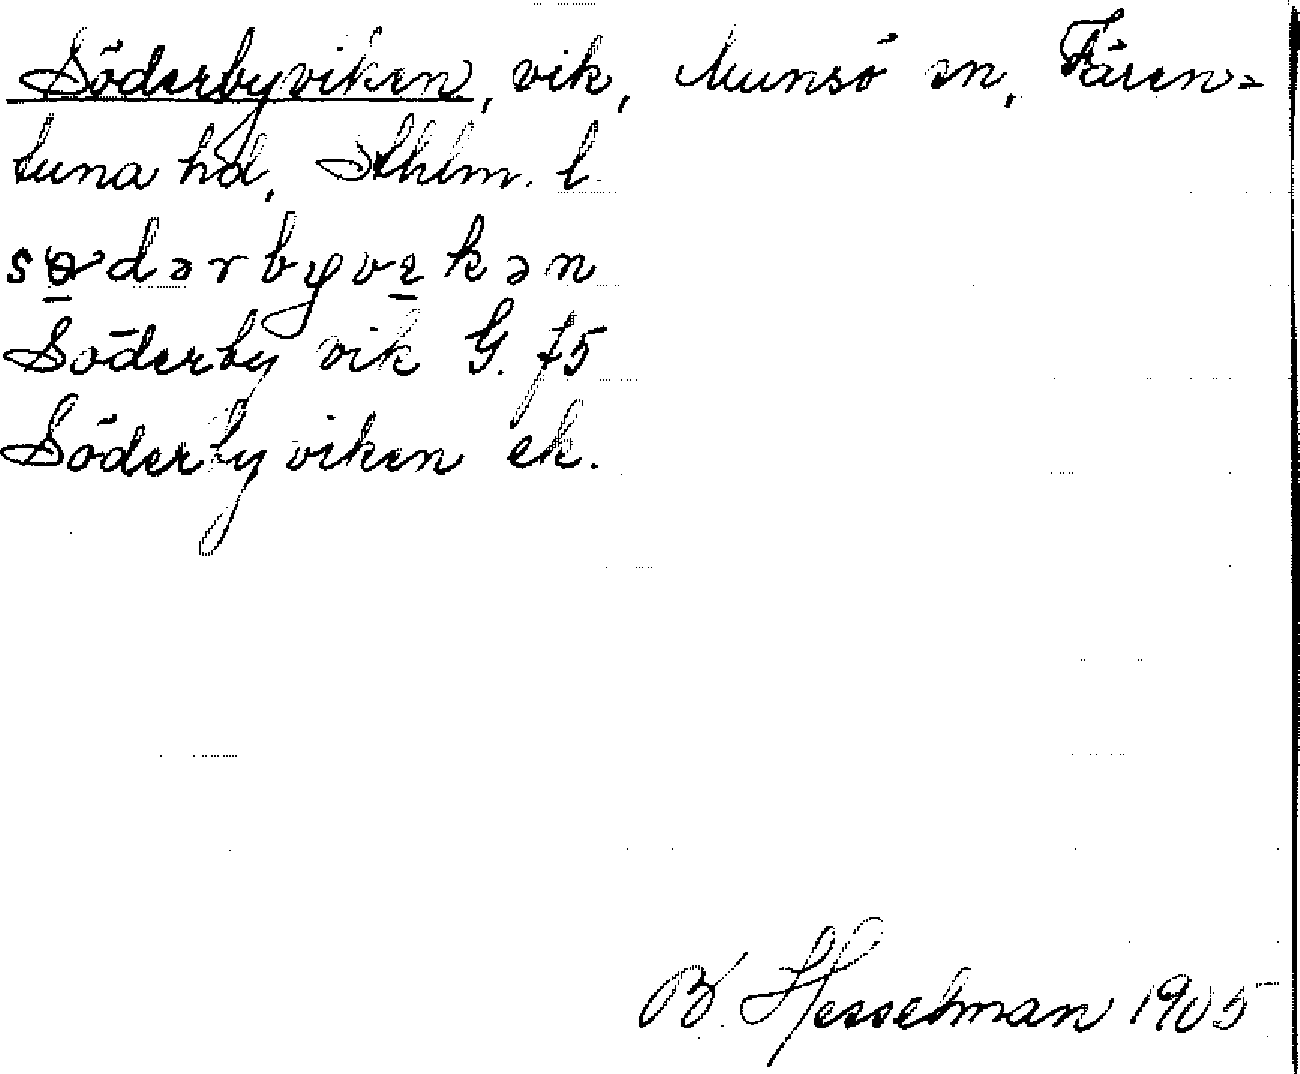 Söderbyviken, vik, Munsö sn, Fären-
tuna hd, Sthlm. l.
sødərbyvikən
Söderby vik G. f5
Söderbyviken ek.
B. Hesselman 1905